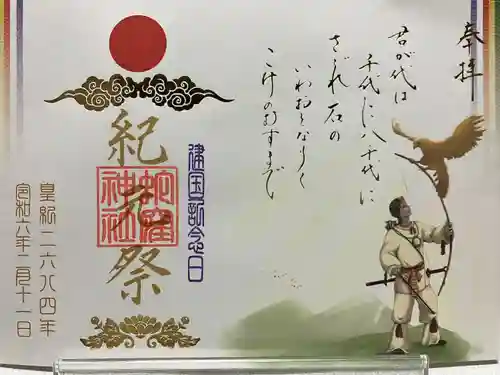 奉拝
君が代は
千代に八千代に
さざれ石の
いわおとなりて
こけのむすまで
建国記念日
紀元祭
蛇窪
神社
皇紀二六八四年
令和六年二月十一日